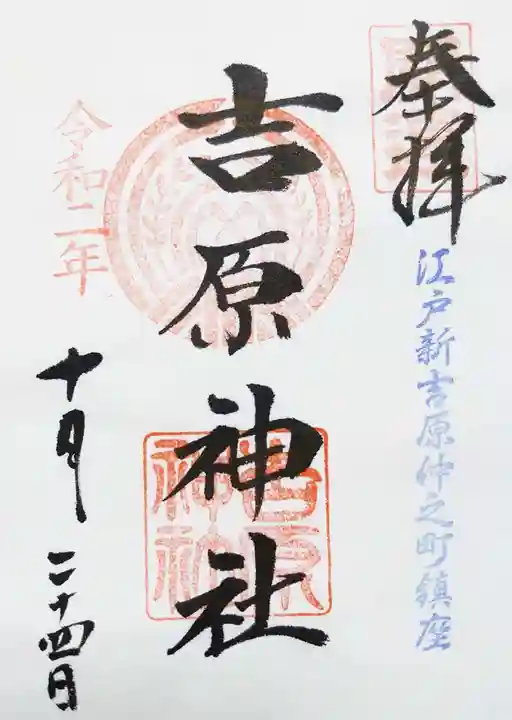 奉拝
江戸新吉原仲之町鎮座
吉原神社
令和二年
十月二十四日